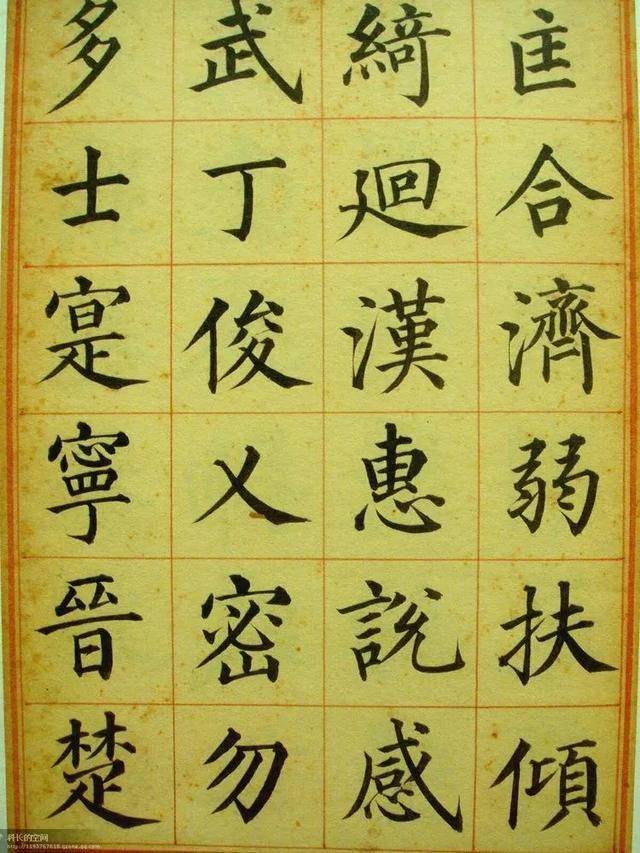 匡合濟弱扶傾
綺廻漢惠說感
武丁俊乂密勿
多士寔寧晉楚
科长的空间
http://1193767618.qzone.qq.com